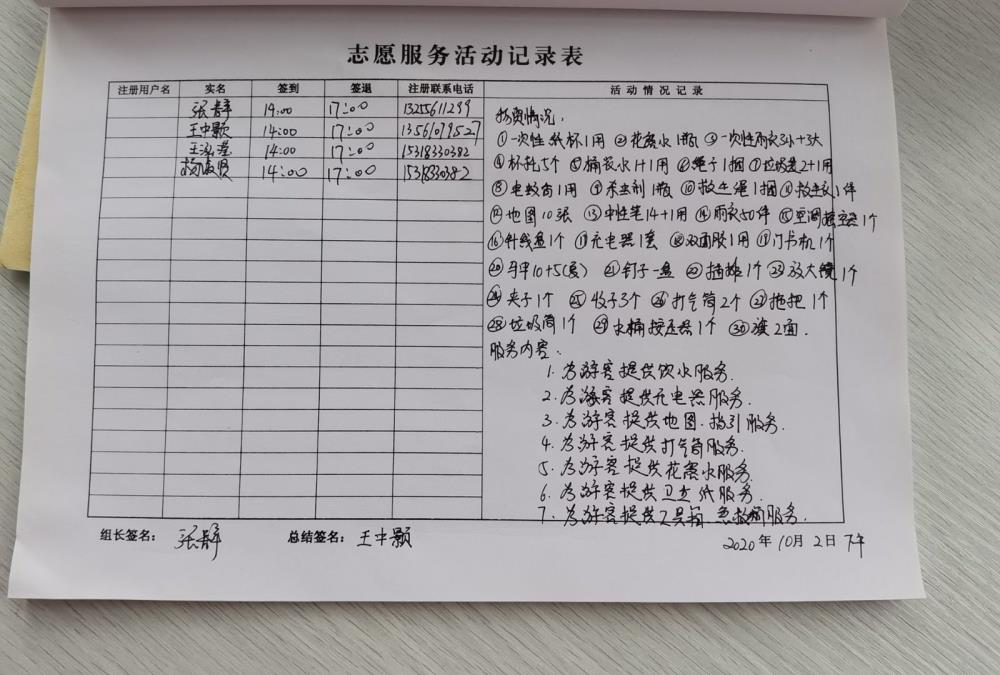 志愿服务活动记录表
注册用户名 实名 签到 签退 注册联系电话 活动情况记录
张静 14:00 17:00 13255611299
王中颢 14:00 17:00 13561079527
王泓 14:00 17:00 15318330382
杨 14:00 17:00 15318330382
物资情况:
①一次性纸杯1用 ②花露水1瓶 ③一次性雨衣3小+3大
④杯托5个 ⑤桶装水1+1用 ⑥绳子1捆 ⑦垃圾袋2+1用
⑧电蚊香1用 ⑨杀虫剂1瓶 ⑩救生绳1捆 ⑪救生衣1件
⑫地图10张 ⑬中性笔14+1用 ⑭雨衣50件 ⑮空调遥控器1个
⑯针线盒1个 ⑰充电器1套 ⑱双面胶1用 ⑲门卡机1个
⑳马甲10+5(夏) ㉑钉子一盒 ㉒插排1个 ㉓放大镜1个
㉔夹子1个 ㉕ 3个 ㉖打气筒2个 ㉗拖把1个
㉘垃圾筒1个 ㉙水桶按压器1个 ㉚旗2面.
服务内容:
1. 为游客提供饮水服务.
2. 为游客提供充电器服务.
3. 为游客提供地图、指引服务.
4. 为游客提供打气筒服务.
5. 为游客提供花露水服务.
6. 为游客提供卫生纸服务.
7. 为游客提供工具箱 急救箱服务.
组长签名: 张静 总结签名: 王中颢 2020年10月2日下午